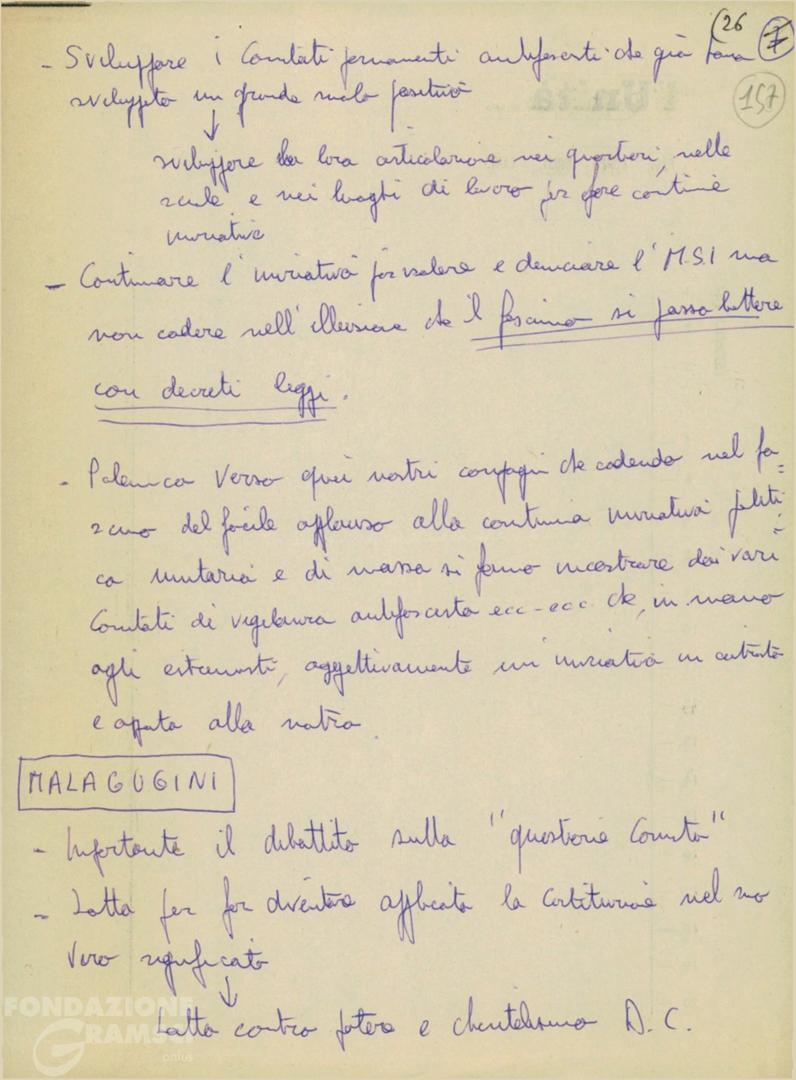 (26 7
157
- Sviluppare i Comitati permanenti antifascisti che già hanno
sviluppato un grande ruolo positivo
↓
sviluppare la loro articolazione nei quartieri, nelle
scuole e nei luoghi di lavoro per fare continue
iniziative
- Continuare l'iniziativa per isolare e denunciare l'M.S.I ma
non cadere nell'illusione che il fascismo si possa battere
con decreti leggi.
- Polemica verso quei nostri compagni che cadendo nel fa=
scino del facile applauso alla continua iniziativa politi=
ca unitaria e di massa si fanno incastrare dai vari
Comitati di vigilanza antifascista ecc-ecc che, in mano
agli estremisti, oggettivamente un'iniziativa in
e opposta alla nostra.
MALAGUGINI
- Importante il dibattito sulla "questione
- Lotta per far diventare applicata la Costituzione nel suo
vero significato
↓
Lotta contro potere e clientelismo D.C.
FONDAZIONE
GRAMSCI
onlus